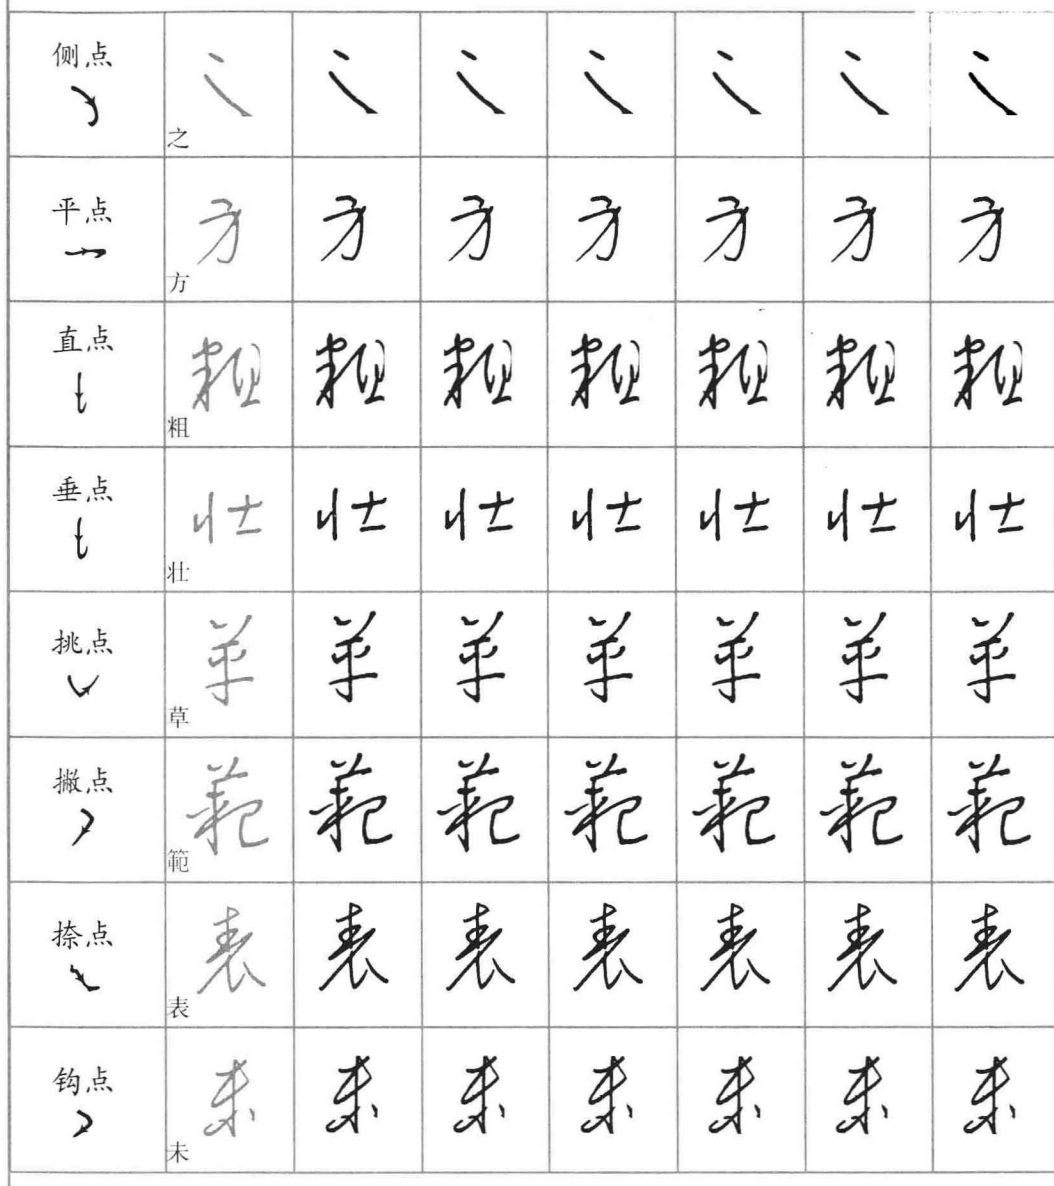 侧点 之 之 之 之 之 之 之 之
平点 方 方 方 方 方 方 方 方
直点 粗 粗 粗 粗 粗 粗 粗 粗
垂点 壮 壮 壮 壮 壮 壮 壮 壮
挑点 草 草 草 草 草 草 草 草
撇点 範 範 範 範 範 範 範 範
捺点 表 表 表 表 表 表 表 表
钩点 未 未 未 未 未 未 未 未